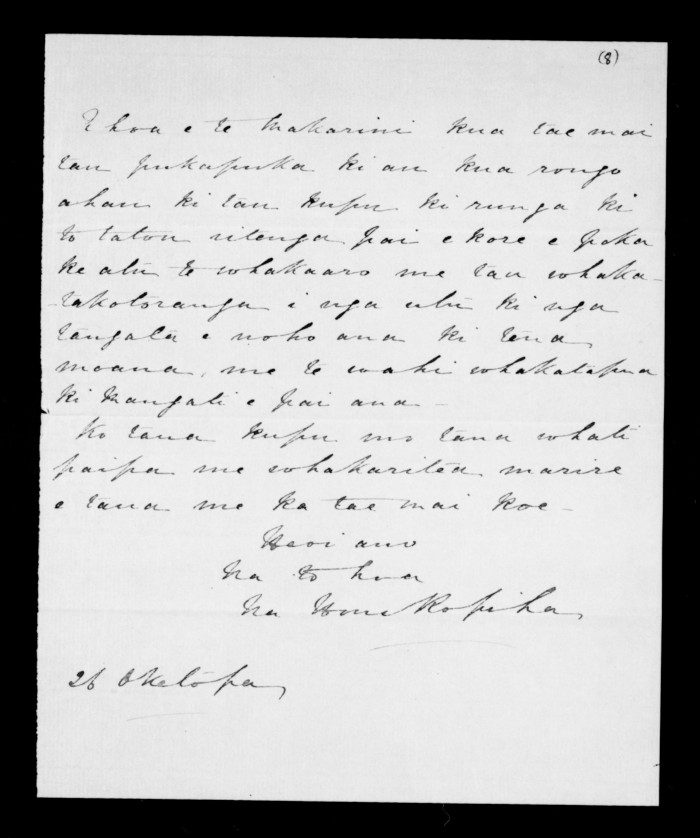 (8)
E hoa e te Makarini kua tae mai
tau pukapuka ki au kua rongo
ahau ki tau kupu ki runga ki
to tatou ritenga pai e kore e poka
ke atu te whakaaro me tau whaka-
takotoranga i nga utu ki nga
tangata e noho ana ki tena
moana, me te wahi whakatapua
ki Mangati e pai ana -
Ko tana kupu mo tana whati
paipa me whakaritea marire
e taua me ka tae mai koe -
Heoi ano
Na to hoa
Na Hone Ropiha
26 Oketopa